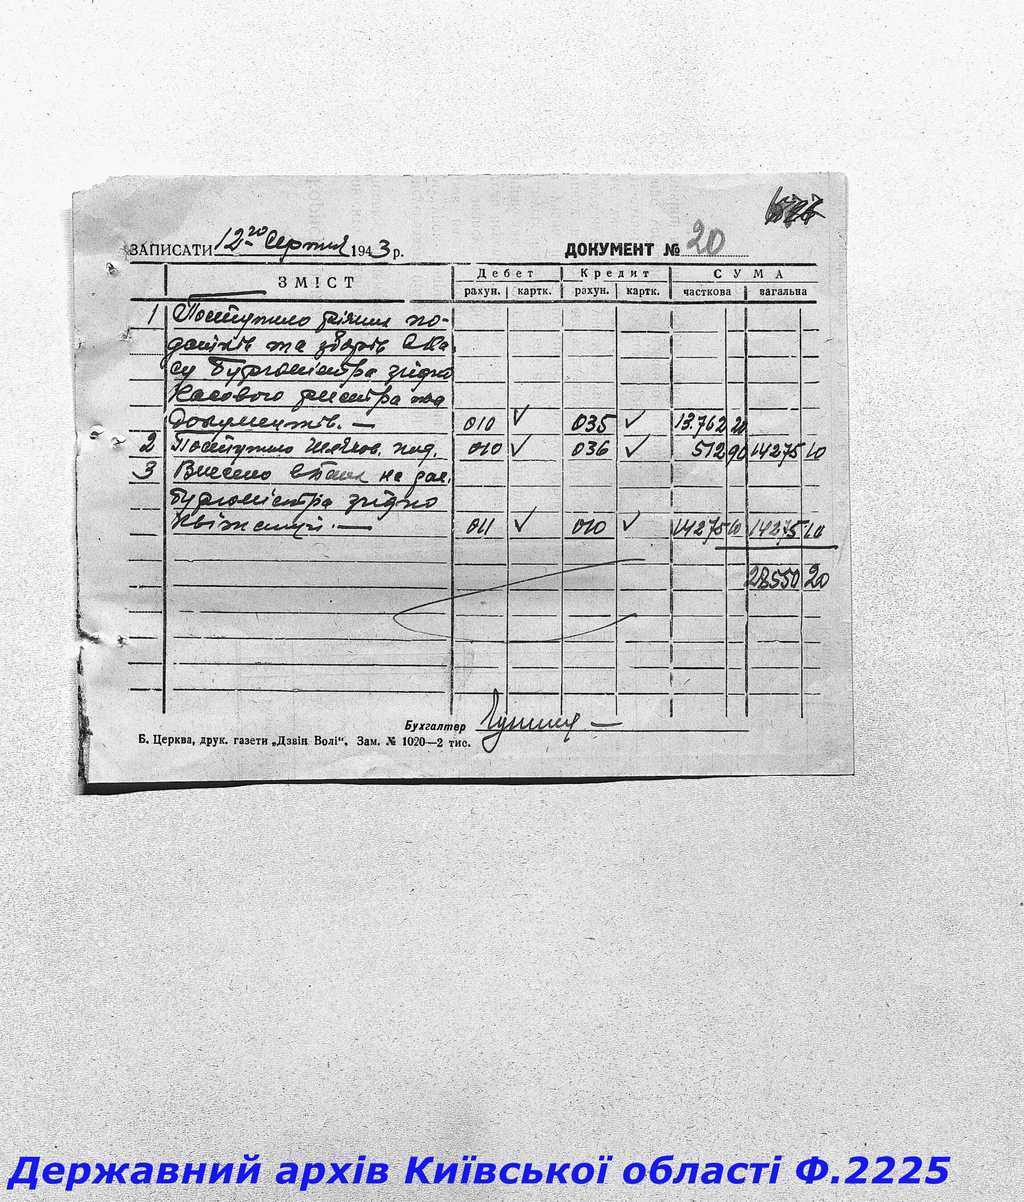 ЗАПИСАТИ 12го Серпня 1943 р.
ДОКУМЕНТ № 20
ЗМІСТ
Дебет Кредит СУМА
рахун. картк. рахун. картк. часткова вагальна
1 Поступило різних по-
датків та зборів в ка
су Бургомістра згідно
касового реєстра та
документів. —
010 ✓ 035 ✓ 13.762 20
2 Поступило под. 010 ✓ 036 ✓ 512 90 14275 10
3 Внесено в банк на рах.
бургомістра згідно
квітанції. — 011 ✓ 010 ✓ 14275 10 14275 10
28550 20
Бухгалтер
Б. Церква, друк. газети „Дзвін Волі“. Зам. № 1020—2 тис.
Державний архів Київської області Ф.2225